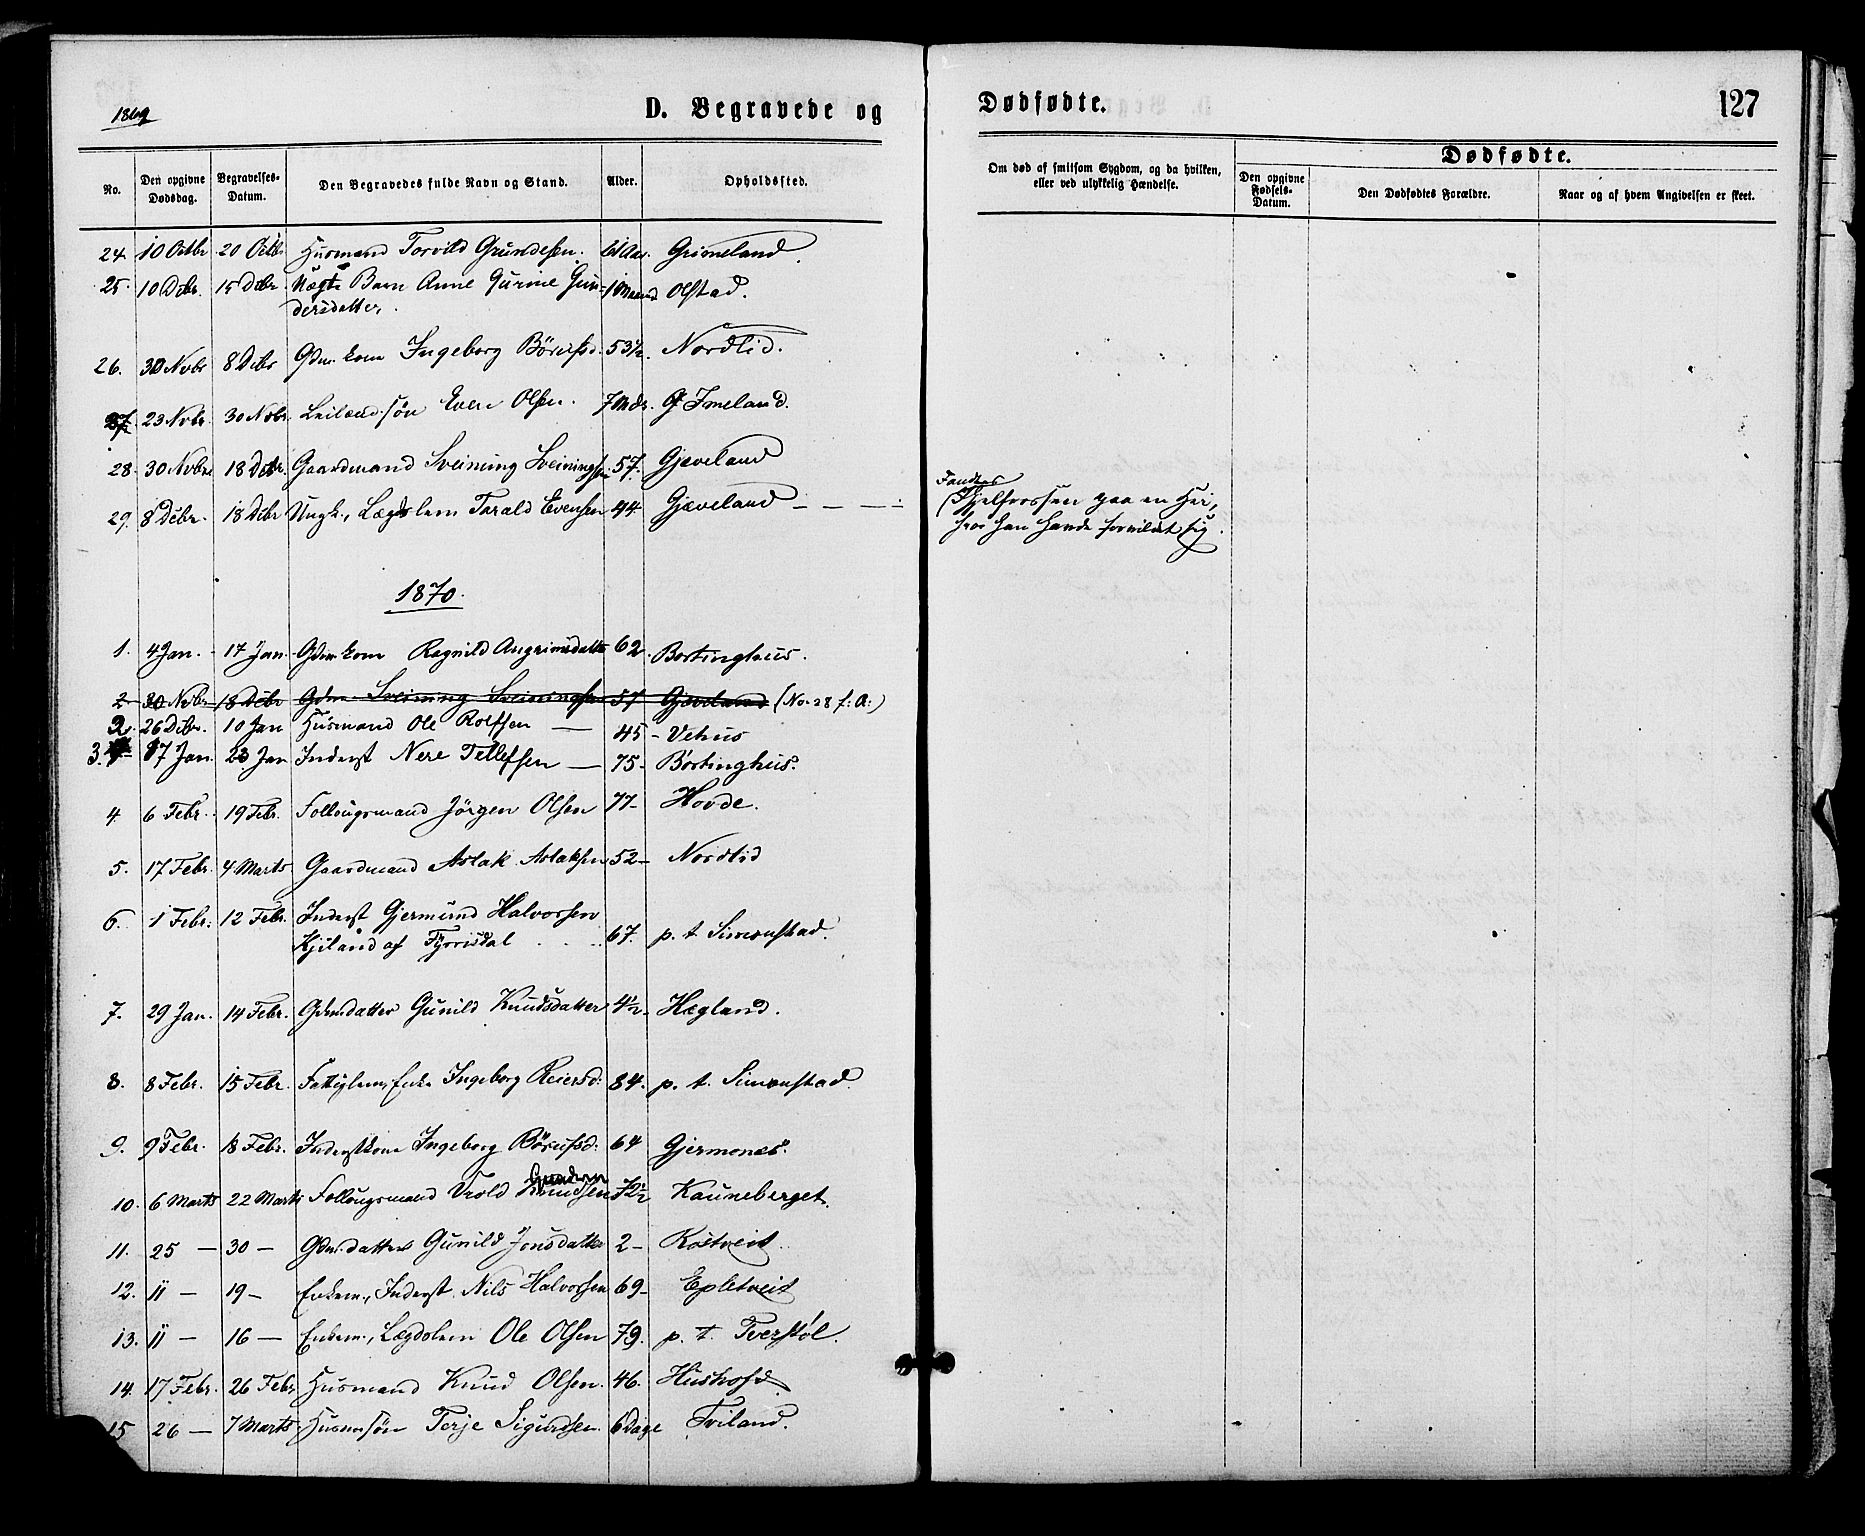 1869
D. Begravede og
Dødfødte.
127
No.
Den opgivne Dødsdag.
Begravelses-Datum.
Den Begravedes fulde Navn og Stand.
Alder.
Opholdssted.
Om død af smitsom Sygdom, og da hvilken, eller ved ulykkelig Hændelse.
Dødfødte.
Den opgivne Fødsels-Datum.
Den Dødfødtes Forældre.
Naar og af hvem Angivelsen er skeet.
24. 10 Octbr 20 Octbr Husmand Torvild Grundesen. 61 Aar. Grimeland.
25. 10 Debr. 15 Debr Uægte Barn Anne Gurine Gun- 1 Maaned Olstad.
dersdatter.
26. 30 Novbr 8 Debr Gdm. kone Ingeborg Börufsd. 53½. Nordlid.
27. 23 Novbr. 30 Nvbr. Leilænd.søn Even Olsen. 7 Mdr. Gr Imeland.
28. 30 Nvbre 18 Debr. Gaardmand Sveinung Sveinungsen 57. Gjæveland
29. 8 Debr. 18 Debr Ungk., Lægdslem Tarald Evensen 44. Gjæveland — — —
Fandtes
(Ihjelfrossen paa en Hei,
hvor han havde forvildet sig.
1870.
1. 4 Jan. 17 Jan. Gdm. kone Ragnild Angrimsdatter 62. Bortinghus.
2 30 Nvbr 18 Debr Gdm Sveinung Sveinungsen 57 Gjæveland (No. 28 f: A:)
2. 26 Debr. 10 Jan Husmand Ole Rolfsen — 45 - Vehus
3. 17 Jan. 23 Jan Inderst Nere Tellefsen — 75- Börtinghus.
4. 6 Febr. 19 Febr. Follougsmand Jörgen Olsen 77- Hovde.
5. 17 Febr. 4 Marts Gaardmand Aslak Aslaksen 52- Nordlid
6. 1 Febr. 12 Febr. Inderst Gjermund Halvorsen
Kjiland af Fyrrisdal . . . 67. p. t. Simonstad.
7. 29 Jan. 14 Febr. Gdmsdatter Gunild Knudsdatter 4½. Hægland.
8. 8 Febr. 15 Febr. Fattiglem, Enke Ingeborg Reiersd: 84. p. t. Simonstad.
9. 9 Febr. 18 Febr. Inderstkone Ingeborg Börufsd: 64 Gjermones.
10. 6 Marts 22 Marts Follougsmand Vrold Knudsen 72½ Kauneberget.
11. 25 — 30 — Gdmsdatter Gunild Jonsdatter 2- Kostveit
12. 11 — 19 — Enkem., Inderst Nils Halvorsen 69- Epletveit
13. 11 — 16 — Enkem., Lægdslem Ole Olsen 79. p. t. Tverstöl.
14. 17 Febr. 26 Febr. Husmand Knud Olsen. 46. Hushofd
15 26 — 7 Marts Husmsön Terje Sigurdsen. 6 Dage Tviland.